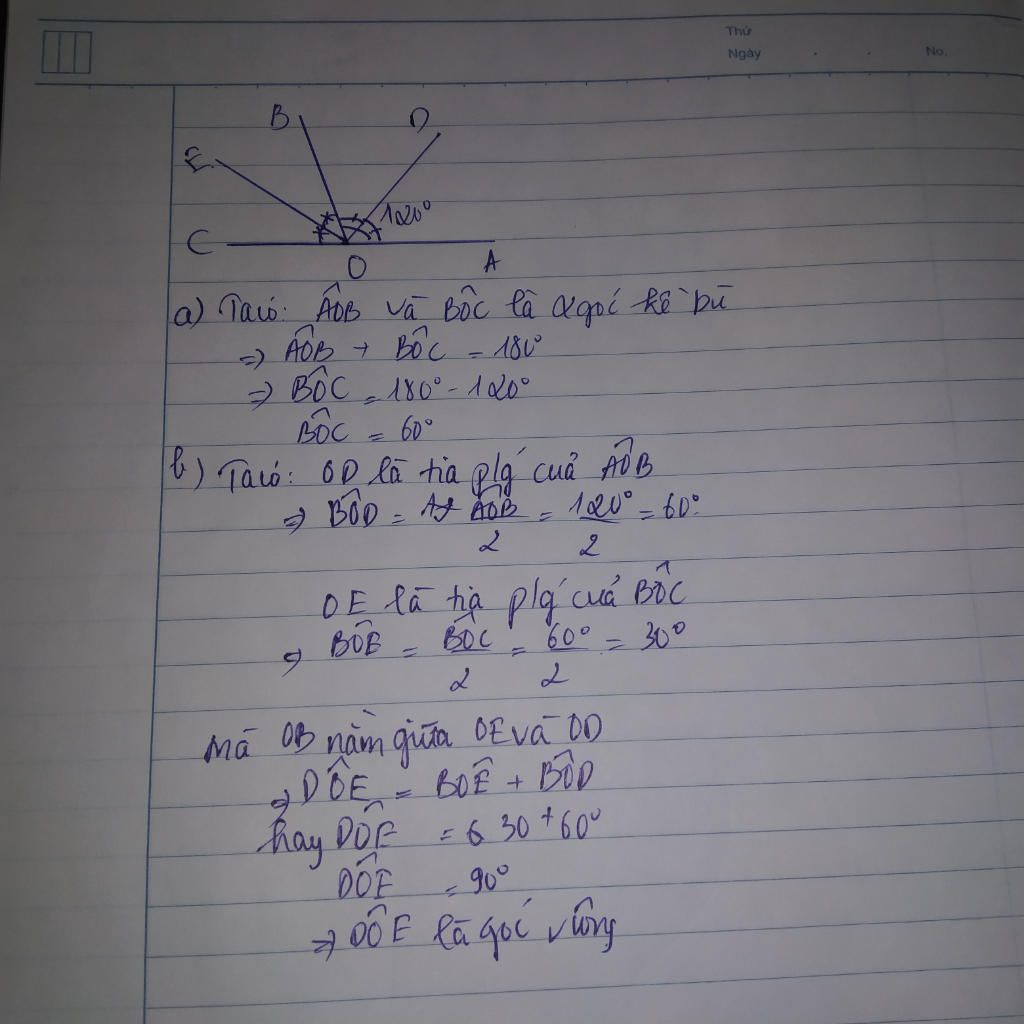 Thứ
Ngày . . No.
B D
E
120°
C
O A
a) Ta có: AÔB và BÔC là 2 góc kề bù
=> AÔB + BÔC = 180°
=> BÔC = 180° - 120°
BÔC = 60°
b) Ta có: OD là tia p/g của AÔB
=> BÔD = AÔB/2 = 120°/2 = 60°
OE là tia p/g của BÔC
=> BÔE = BÔC/2 = 60°/2 = 30°
Mà OB nằm giữa OE và OD
=> DÔE = BOÊ + BÔD
hay DÔE = 30 + 60°
DÔE = 90°
=> DÔE là góc vuông